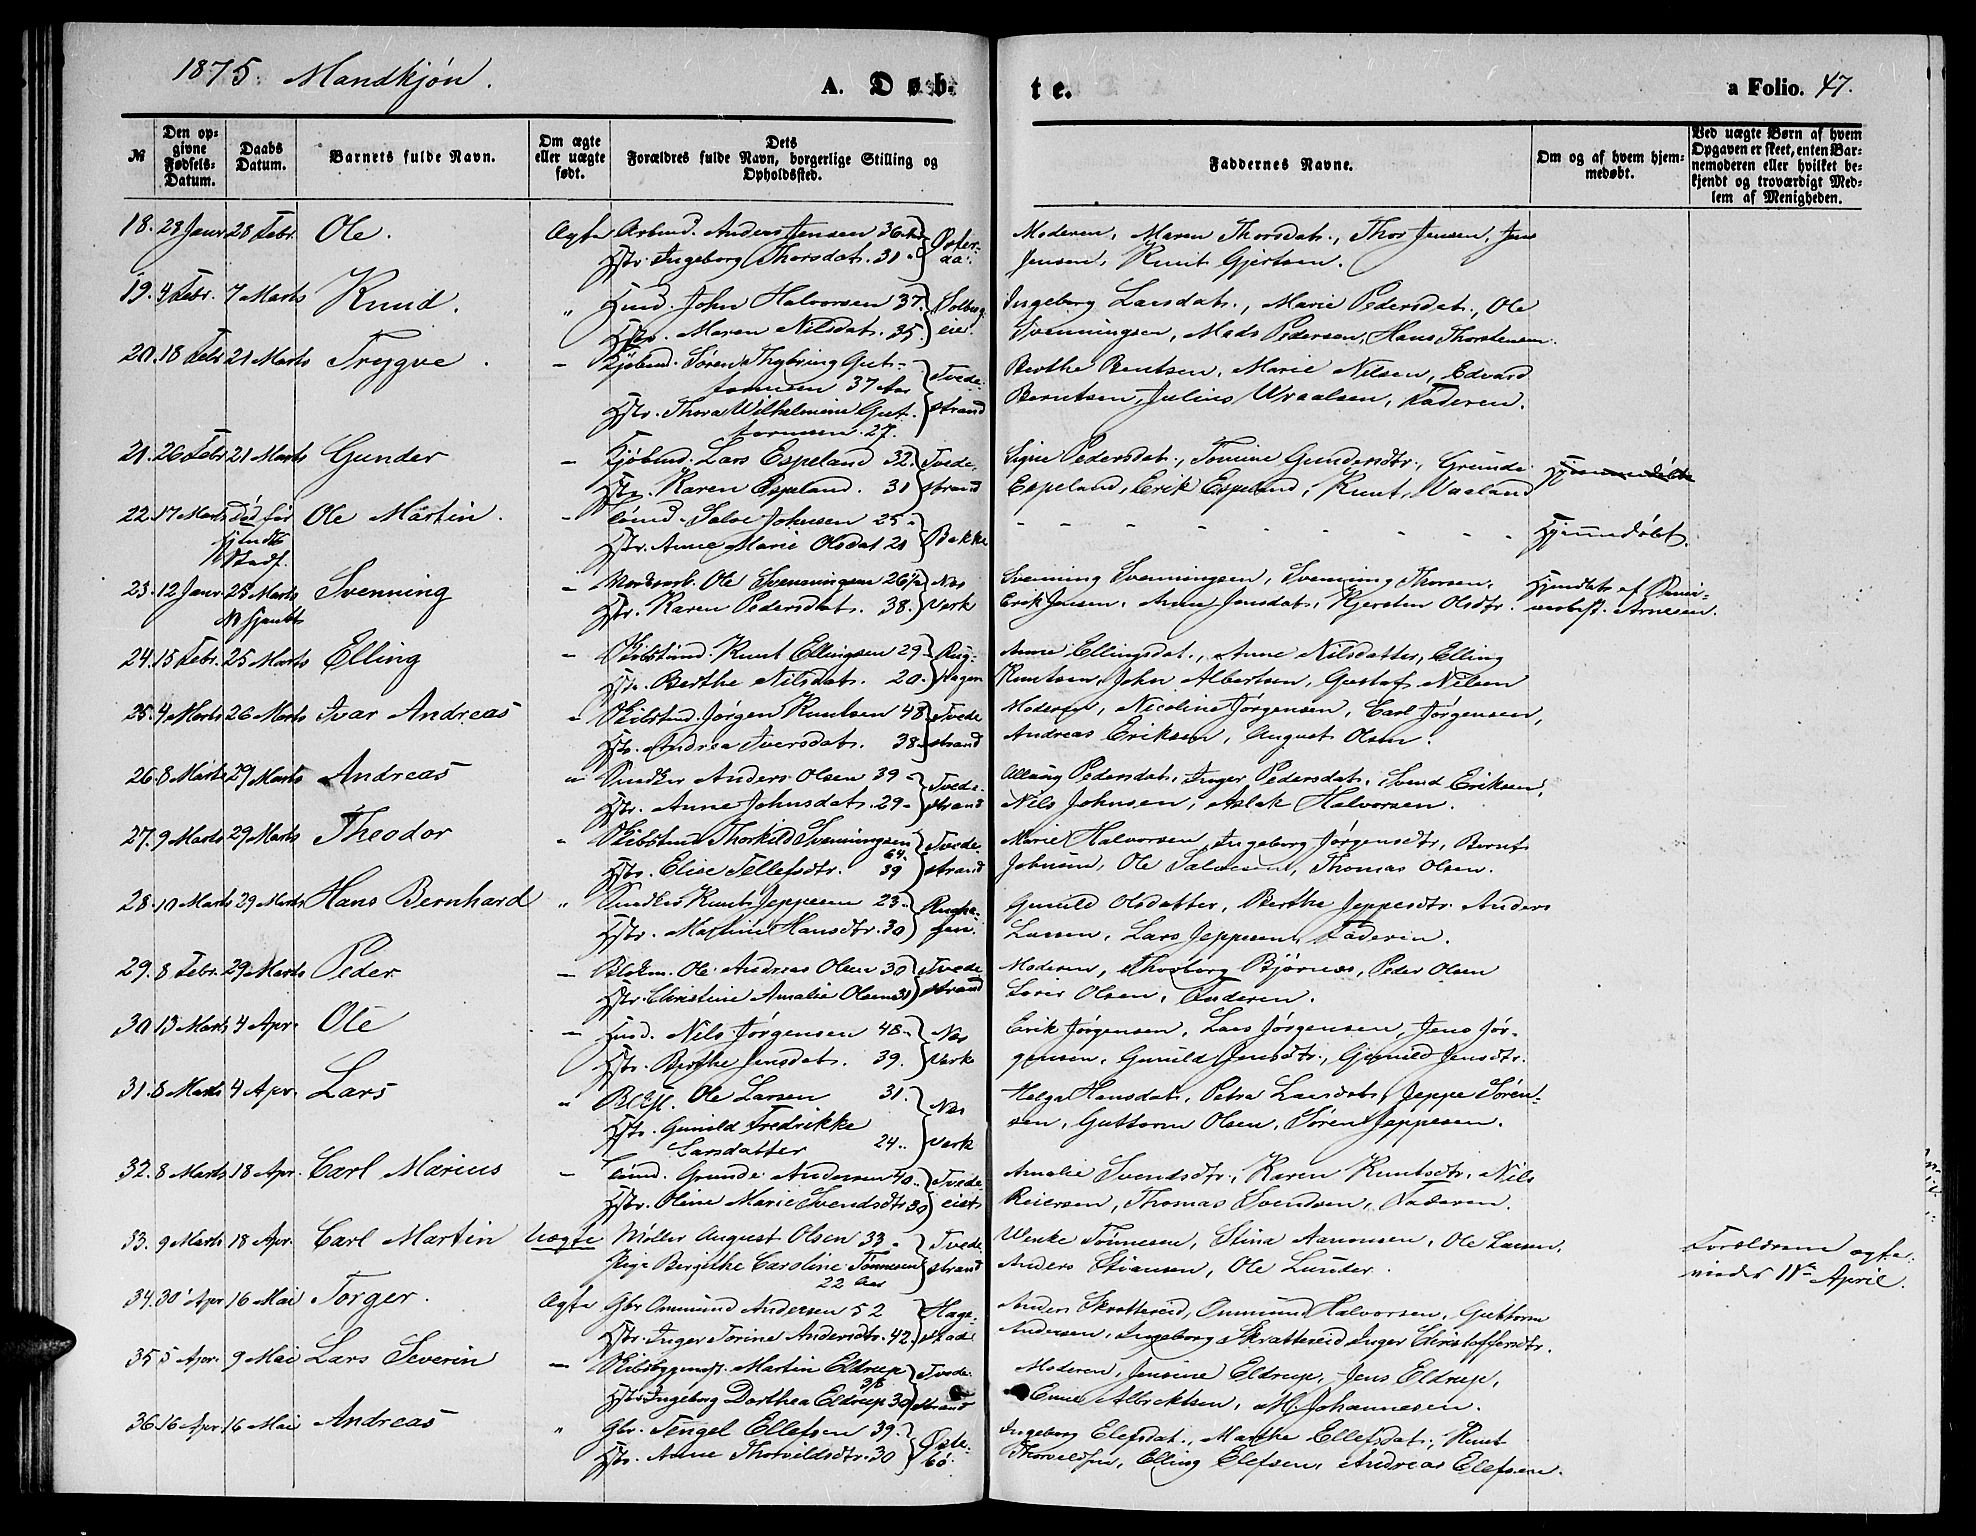 1875. Mandkjøn.
A. Døbte.
a Folio. 47.
№ | Den opgivne Fødsels-Datum. | Daabs Datum. | Barnets fulde Navn. | Om ægte eller uægte født. | Dets Forældres fulde Navn, borgerlige Stilling og Opholdssted. | Faddernes Navne. | Om og af hvem hjemmedøbt. | Ved uægte Børn af hvem Opgaven er skeet, enten Barnemoderen eller hvilket bekjendt og troværdigt Medlem af Menigheden.
18. 28 Janr. 28 Febr. Ole. Ægte Arbmd. Anders Jensen 36 Øster- Moderen, Maren Thorsdat., Thor Jensen, Jens
Hstr. Ingeborg Thorsdat. 31 aa. Jensen, Knut Gjertsen.
19. 4 Febr. 7 Marts Knud. " Husmd. John Halvorsen 37. Solberg Ingeborg Larsdat., Marie Pedersdat., Ole
Hstr. Maren Nilsdat. 35. eie. Svenningsen, Mads Pedersen, Hans Thorstensen.
20. 18 Febr 21 Marts Trygve. - Kjøbmd. Søren Thybring Gut- Tvede- Berthe Bentsen, Marie Nilsen, Edvard
tormsen 37 Aar strand Berntsen, Julius Uraalsen, Faderen.
Hstr. Thora Wilhelmine Gut-
tormsen 27.
21. 26 Febr 21 Marts Gunder - Kjøbmd. Lars Espeland 32. Tvede- Signe Pedersdat., Tomine Gundersdtr., Grunde
Hstr. Karen Espeland. 31 strand Espeland, Erik Espeland, Knut Vaaland Hjemmedøbt
22. 17 Marts Død før Ole Martin. - Tømd. Salve Johnsen 25 Bakke - - - - - - - Hjemmedøbt.
Hjmdb Stadf. Hstr. Anne Marie Olsdat 21
23. 12 Janr. 25 Marts Svenning - Ole Svenningsen 26½ Næs Svenning Svenningsen, Svenning Thorsen, Hjemdbt af
Hstr. Karen Pedersdat. 38. Værk Erik Jensen, Anne Jensdat., Kjersten Olsdtr. Arnesen.
24. 15 Febr. 25 Marts Elling - Skibstmd. Knut Ellingsen 29 Anne Ellingsdat., Anne Nilsdatter, Elling
Hstr. Berthe Nilsdat. 20. Knutsen, John Albertsen, Gustaf Nilsen
25. 4 Marts 26 Marts Ivar Andreas " Skibstmd. Jørgen Knutsen 48 Tvede Moderen, Nicoline Jørgensen, Carl Jørgensen,
Hstr. Andrea Iversdat. 38. strand Andreas Eriksen, August Olsen.
26. 8 Marts 29 Marts Andreas " Snedker Anders Olsen 39 Tvede- Pedersdat., Inger Pedersdat., Svend Eriksen,
Hstr. Anne Johnsdat. 29 strand Nils Johnsen, Aslak Halvorsen.
27. 9 Marts 29 Marts Theodor " Skibstmd Thorkild Svenningsen 64. Tvede- Marie Halvorsen, Ingeborg Jørgensdtr, Bernt
Hstr. Elise Tellefsdtr. 39 strand Johnsen, Ole Salvesen, Thomas Olsen.
28. 10 Marts 29 Marts Hans Bernhard " Snedker Knut Jeppesen 23 Gunild Olsdatter, Berthe Jeppesdtr. Anders
Hstr. Martine Hansdtr. 30 Larsen, Lars Jeppesen, Faderen.
29. 8 Febr. 29 Marts Peder - Blokm. Ole Andreas Olsen 30 Tvede Moderen, Thorborg Bjørnes, Peder Olsen
Hstr. Christine Amalie Olsen 31 strand Olsen, Faderen.
30 13 Marts 4 Apr. Ole - Husmd. Nils Jørgensen 48 Næs Erik Jørgensen, Lars Jørgensen, Jens Jør-
Hstr. Berthe Jensdat. 39. Værk gensen, Gunild Jensdtr., Gunild Jensdtr.
31. 8 Marts 4 Apr. Lars " Ole Larsen 31. Næs Helga Hansdat., Petra Larsdat, Jeppe Søren-
Hstr. Gunild Fredrikke Værk sen, Guttorm Olsen, Søren Jeppesen.
Larsdatter 24
32. 8 Marts 18 Apr. Carl Marius - Tømd. Grunde Andersen 40 Tvede Amalie Svendsdtr., Karen Knutsdtr. Nils
Hstr. Oline Marie Svendsdtr 30 eiet Reiersen, Thomas Svendsen, Faderen.
33. 9 Marts 18 Apr. Carl Martin Uægte Møller August Olsen 33 Tvede Wenke Tønnesen, Stina Aanonsen, Ole Larsen, Forældrene ægte-
Pige Bergithe Caroline Tønnesen strand Anders Stiansen, Ole Lunder. viedes 18de April.
22 Aar
34. 30 Apr 16 Mai Torger. Ægte Gbr. Ommund Andersen 52 Hage- Anders Skrattereid, Ommund Halvorsen, Guttorm
Hstr. Inger Torine Andersdtr. 42. stad Andersen, Ingeborg Skrattereid, Inger Christoffersdtr.
35 5 Apr. 9 Mai Lars Severin - Martin Eldrup Tvede- Moderen, Jensine Eldrup, Jens Eldrup,
Hstr Ingeborg Dorthea Eldrup 30 strand Albrektsen, M. Johannesen.
36 16 Apr 16 Mai Andreas " Gbr. Tengel Ellefsen 39. Øste- Ingeborg Elefsdat., Marthe Ellefsdat., Knut
Hstr. Anne Thorvildsdtr. 30 bø. Thorvildsen, Elling Elefsen, Andreas Elefsen.